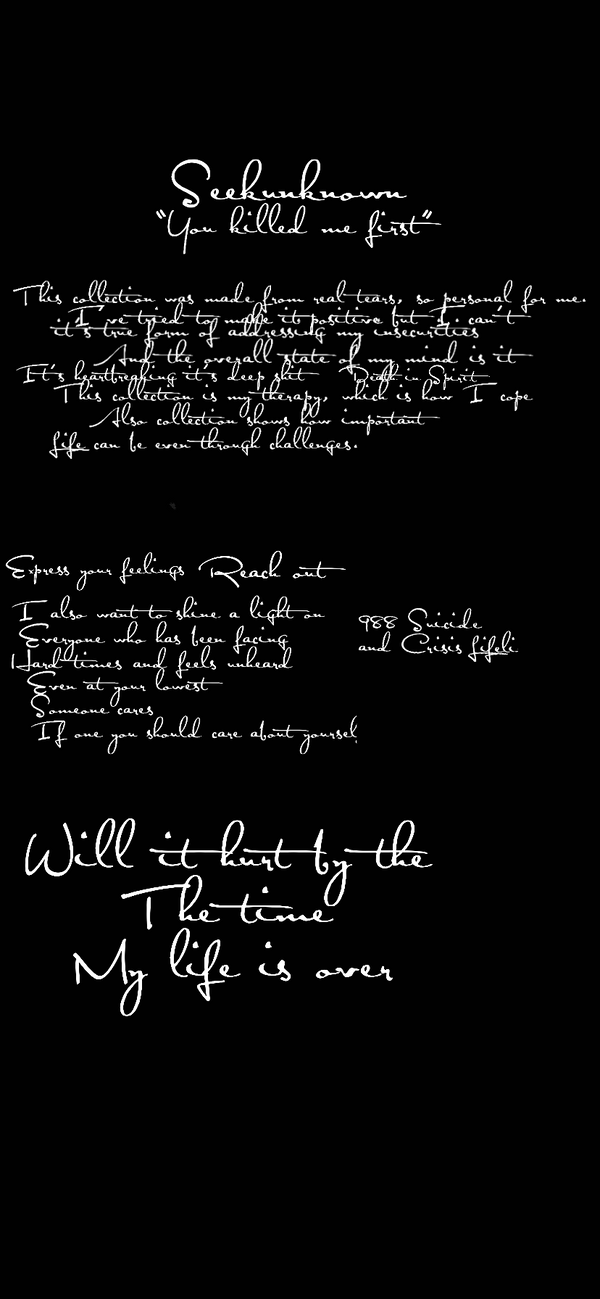 Seekunknown
"You killed me first"
This collection was made from real tears, so personal for me.
I've tried to make it positive but I. can't
it's true form of addressing my insecurities
And the overall state of my mind is it
It's heartbreaking it's deep shit Death in Spirit
This collection is my therapy, which is how I cope
Also collection shows how important
Life can be even through challenges.
Express your feelings Reach out
I also want to shine a light on
Everyone who has been facing
Hard times and feels unheard
Even at your lowest
Someone cares
If one you should care about yourself
988 Suicide
and Crisis Lifeli
Will it hurt by the
The time
My life is over